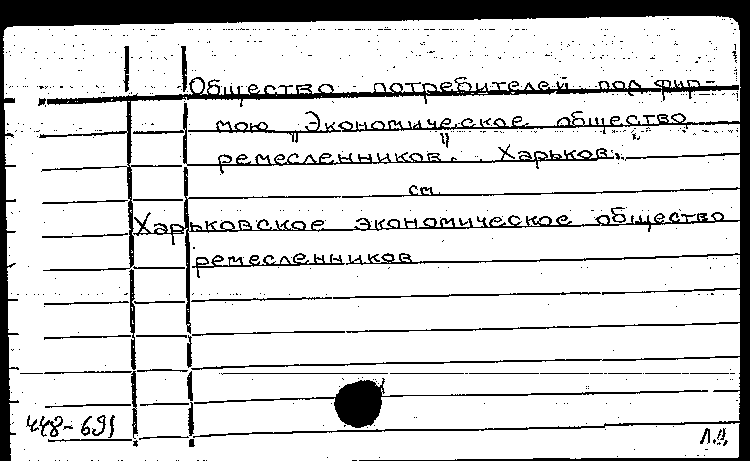 Общество потребителей под фир-
мою „Экономическое общество
ремесленников". Харьков,
см.
Харьковское экономическое общество
ремесленников
448-691
Л.Д